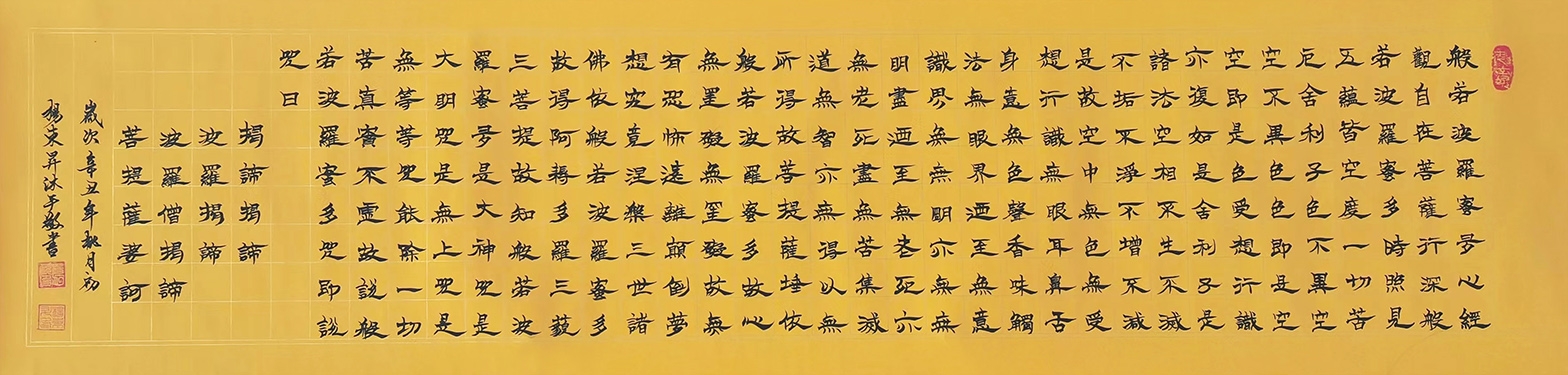 般若波羅蜜多心經
觀自在菩薩行深般
若波羅蜜多時照見
五蘊皆空度一切苦
厄舍利子色不異空
空不異色色即是空
空即是色受想行識
亦復如是舍利子是
諸法空相不生不滅
不垢不淨不增不減
是故空中無色無受
想行識無眼耳鼻舌
身意無色聲香味觸
法無眼界迺至無意
識界無無明亦無無
明盡迺至無老死亦
無老死盡無苦集滅
道無智亦無得以無
所得故菩提薩埵依
般若波羅蜜多故心
無罣礙無罣礙故無
有恐怖遠離顛倒夢
想究竟涅槃三世諸
佛依般若波羅蜜多
故得阿耨多羅三藐
三菩提故知般若波
羅蜜多是大神咒是
大明咒是無上咒是
無等等咒能除一切
苦真實不虛故說般
若波羅蜜多咒即說
咒曰
揭諦揭諦
波羅揭諦
波羅僧揭諦
菩提薩婆訶
歲次辛丑年秋月初
楊東昇沐手敬書